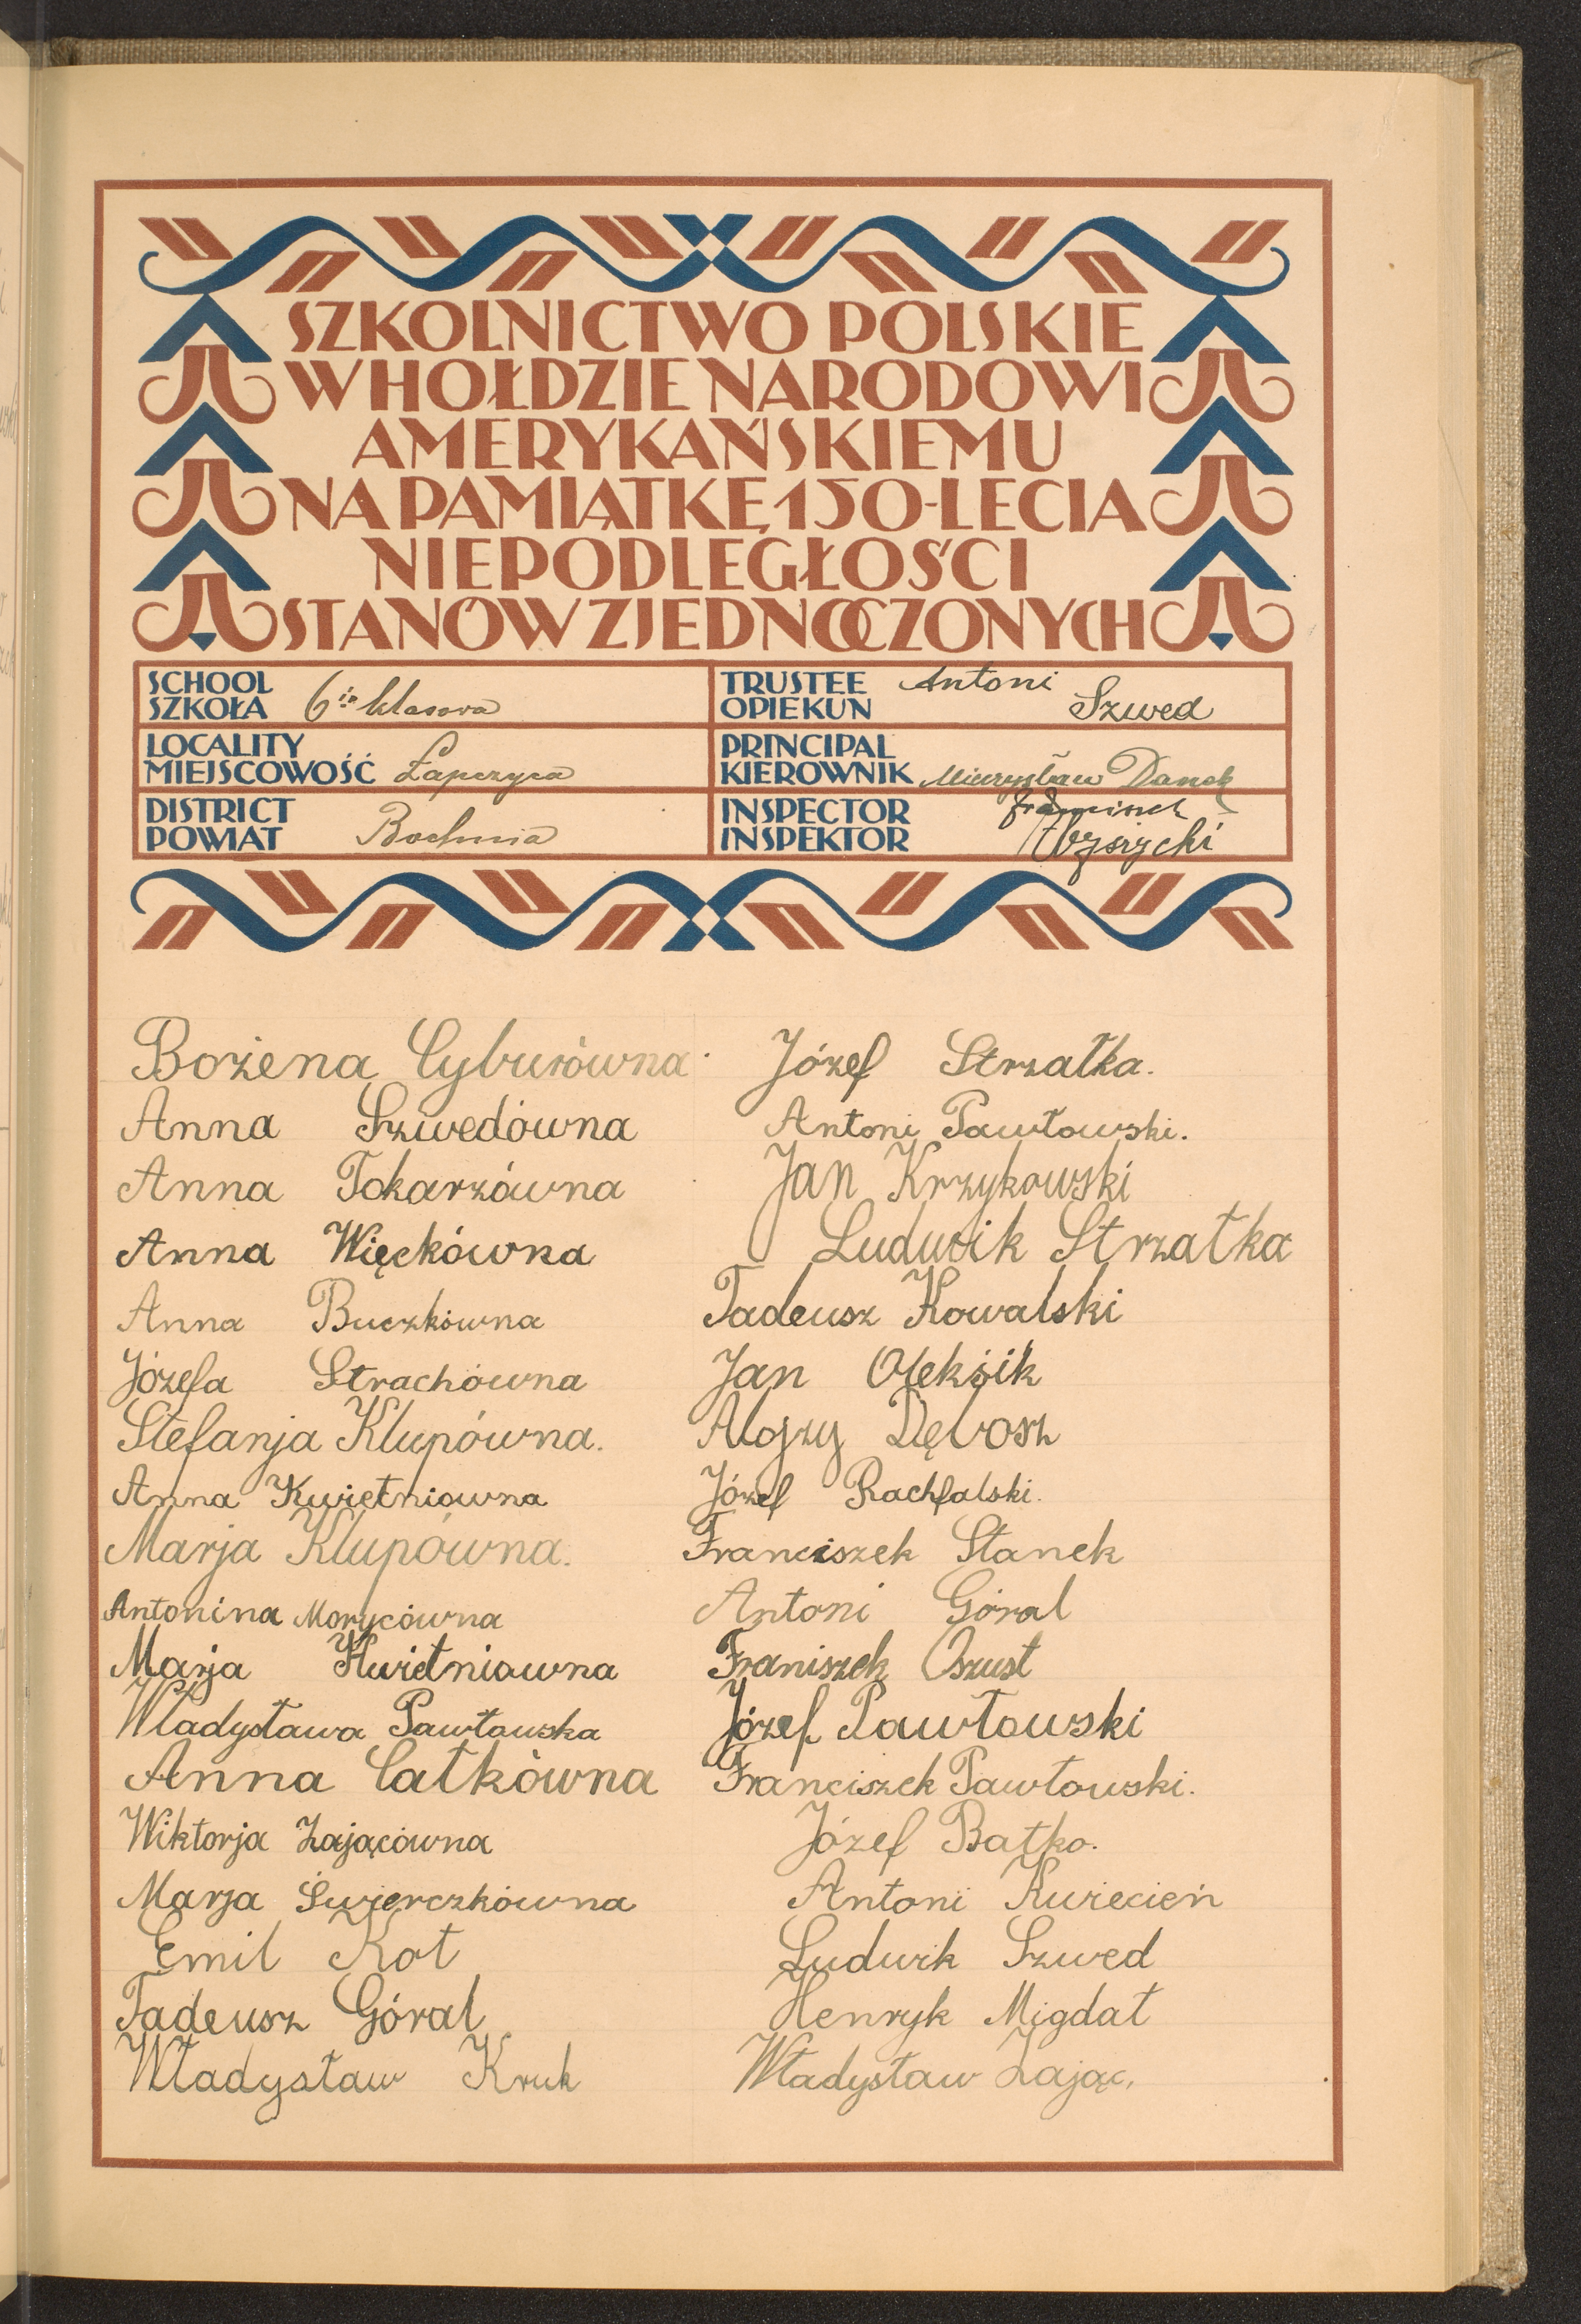 SZKOLNICTWO POLSKIE
W HOŁDZIE NARODOWI
AMERYKAŃSKIEMU
NA PAMIĄTKĘ 150-LECIA
NIEPODLEGŁOŚCI
STANÓW ZJEDNOCZONYCH
SCHOOL
SZKOŁA 6-io klasowa
TRUSTEE
OPIEKUN Antoni Szwed
LOCALITY
MIEJSCOWOŚĆ Łapczyca
PRINCIPAL
KIEROWNIK Mieczysław Danek
DISTRICT
POWIAT Bochnia
INSPECTOR
INSPEKTOR Franciszek
Bożena Cyburówna
Anna Szwedówna
Anna Tokarzówna
Anna Więckówna
Anna Buczkówna
Józefa Strachówna
Stefanja Klupówna.
Anna Kwietniowna
Marja Klupówna.
Antonina Morycówna
Marja Kwietniowna
Władysława Pawłowska
Anna Całkówna
Wiktorja Zającówna
Marja Świerczkówna
Emil Kot
Tadeusz Góral
Władysław Kruk
Józef Strzałka.
Antoni Pawłowski.
Jan Krzykowski
Ludwik Strzałka
Tadeusz Kowalski
Jan Oleksik
Alojzy Dębosz
Józef Rachfalski.
Franciszek Stanek
Antoni Góral
Franiszek Oszust
Józef Pawłowski
Franciszek Pawłowski.
Józef Batko.
Antoni Kwiecień
Ludwik Szwed
Henryk Migdał
Władysław Zając,